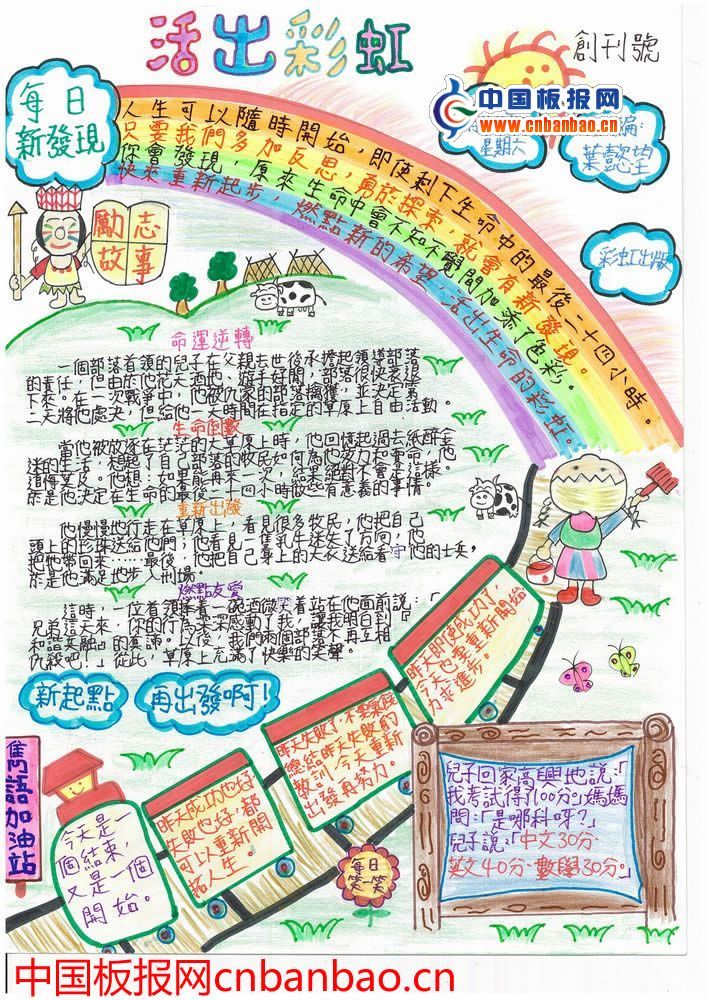 活出彩虹
創刊號
每日
新發現
中国板报网
www.cnbanbao.cn
星期六
葉懿望
彩虹出版
人生可以隨時開始，即使剩下生命中的最後二十四小時。
只要我們多加反思，勇於探索，就會有新發現。
你會發現，原來生命中會不知不覺間加添了色彩。
快來重新起步，燃點新的希望，活出生命的彩虹。
勵志
故事
命運逆轉
一個部落首領的兒子在父親去世後承擔起領導部落
的責任，但由於他花天酒地、遊手好閒，部落很快衰退
下來。在一次戰爭中，他被仇家的部落擒獲，並決定第
二天將他處決，但給他一天時間在指定的草原上自由活動。
生命倒數
當他被放逐在茫茫的大草原上時，他回憶起過去紙醉金
迷的生活，想起了自己部落的牧民如何為他效力和賣命，他
追悔莫及。他想：如果能再來一次，結果絕對不會是這樣。
於是他決定在生命的最後二十四小時做些有意義的事情。
重新出發
他慢慢地行走在草原上，看見很多牧民，他把自己
頭上的珍珠送給他們；他看見一隻乳牛迷失了方向，他
把他帶回來……最後，他把自己身上的大衣送給看守他的士兵，
於是他滿足地步入刑場。
燃點友愛
這時，一位首領捧着一碗酒微笑着站在他面前說：「
兄弟這天來，你的行為深深感動了我，讓我明白到『
和諧交融』的真諦。以後，我們兩個部落不再互相
仇殺吧！」從此，草原上充滿了快樂的笑聲。
新起點
再出發啊！
雋語加油站
今天是一
個結束，
又是一個
開始。
昨天成功也好，
失敗也好，都
可以重新開
拓人生。
昨天失敗了，不要氣餒
總結昨天失敗的
教訓，今天重新
出發再努力。
昨天即使成功了，
今天也要重新開始
力求進步。
每日
笑一笑
兒子回家高興地說：「
我考試得了100分。」媽媽
問：「是哪科呀？」
兒子說：「中文30分、
英文40分、數學30分。」
中国板报网cnbanbao.cn